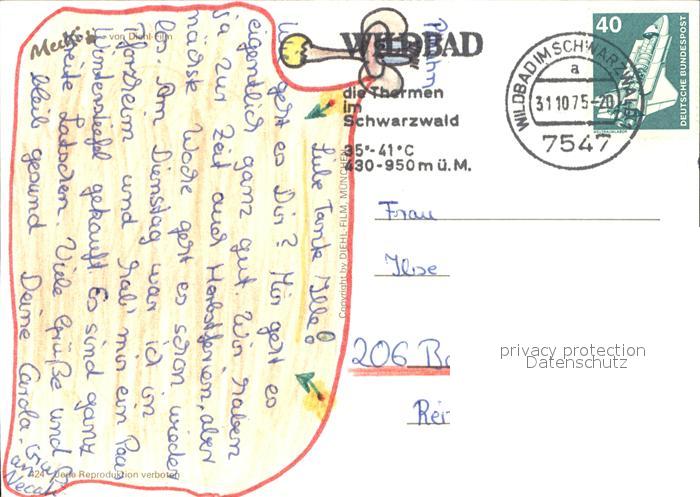 Mecki
von Diehl-Film
WILDBAD
die Thermen
im
Schwarzwald
35°-41°C
430-950 m ü. M.
WILDBAD IM SCHWARZWALD
a
31.10.75-20
7547
40
DEUTSCHE BUNDESPOST
WELTRAUMLABOR
Liebe Tante Ille!
geht es Dir? Mir geht es
eigentlich ganz gut. Wir haben
ja zur Zeit auch Herbstferien, aber
nächste Woche geht es schon wieder
los. Am Dienstag war ich in
Pforzheim und hab' mir ein Paar
Winterstiefel gekauft. Es sind ganz
Latschen. Viele Grüße und
bleib gesund Deine Carola.
Gruß
an
Copyright by DIEHL-FILM, MÜNCHEN
424 - Jede Reproduktion verboten
Frau
Ilse
206 Ba
Rei
privacy protection
Datenschutz